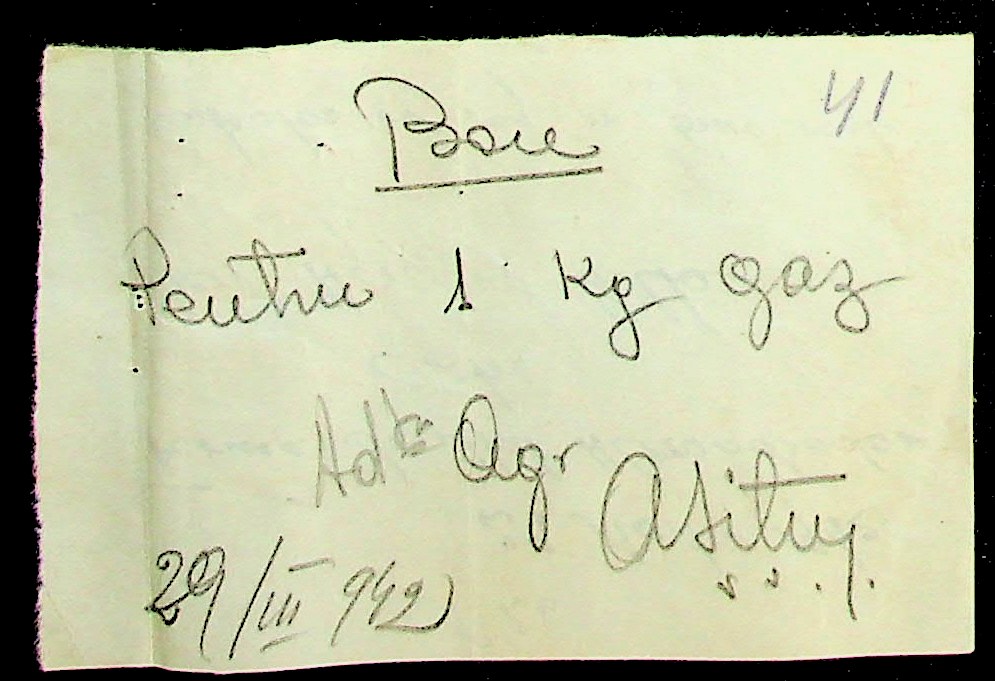 41
Bon
Pentru 1 kg gaz
Adtr Agr
29/III 942